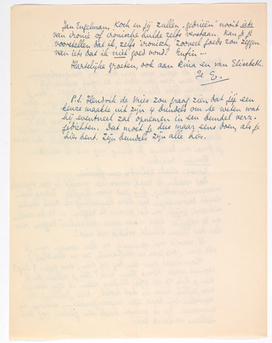 Jan Engelman, Koch en zij zullen "gebrieën" nooit iets
van ironie of ironische hulde zelfs verstaan. Kan je je
voorstellen dat ik, zelfs ironisch, zooveel goeds zou zeggen
van iets dat ik niet goed vond? Enfin –
Hartelijke groeten, ook aan Rina en van Elisabeth.
Je E.
P.S. Hendrik de Vries zou graag zien dat jij een
keuze maakte uit zijn 4 bundels om te weten wat
hij eventueel zal opnemen in een bundel verz.
gedichten. Dat moet je dus maar eens doen, als je
hier bent. Zijn bundels zijn alle hier.